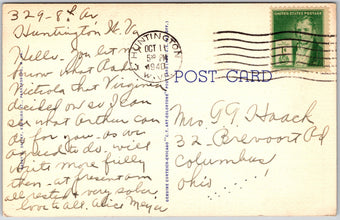 329-8th Av
Huntington W. Va
Hello. You let me
know what
Victrola that Virginia
decided on so I can
see what Arthur can
do for you - as we
agreed to do, will
write more fully
then - at present am
all rested & very sober
love to all. Alice Meyer
HUNTINGTON
OCT 11
5 PM
1940
W.VA.
UNITED STATES POSTAGE
POST CARD
Mrs. G G Haack
32- Brevoort Rd
Columbus
Ohio